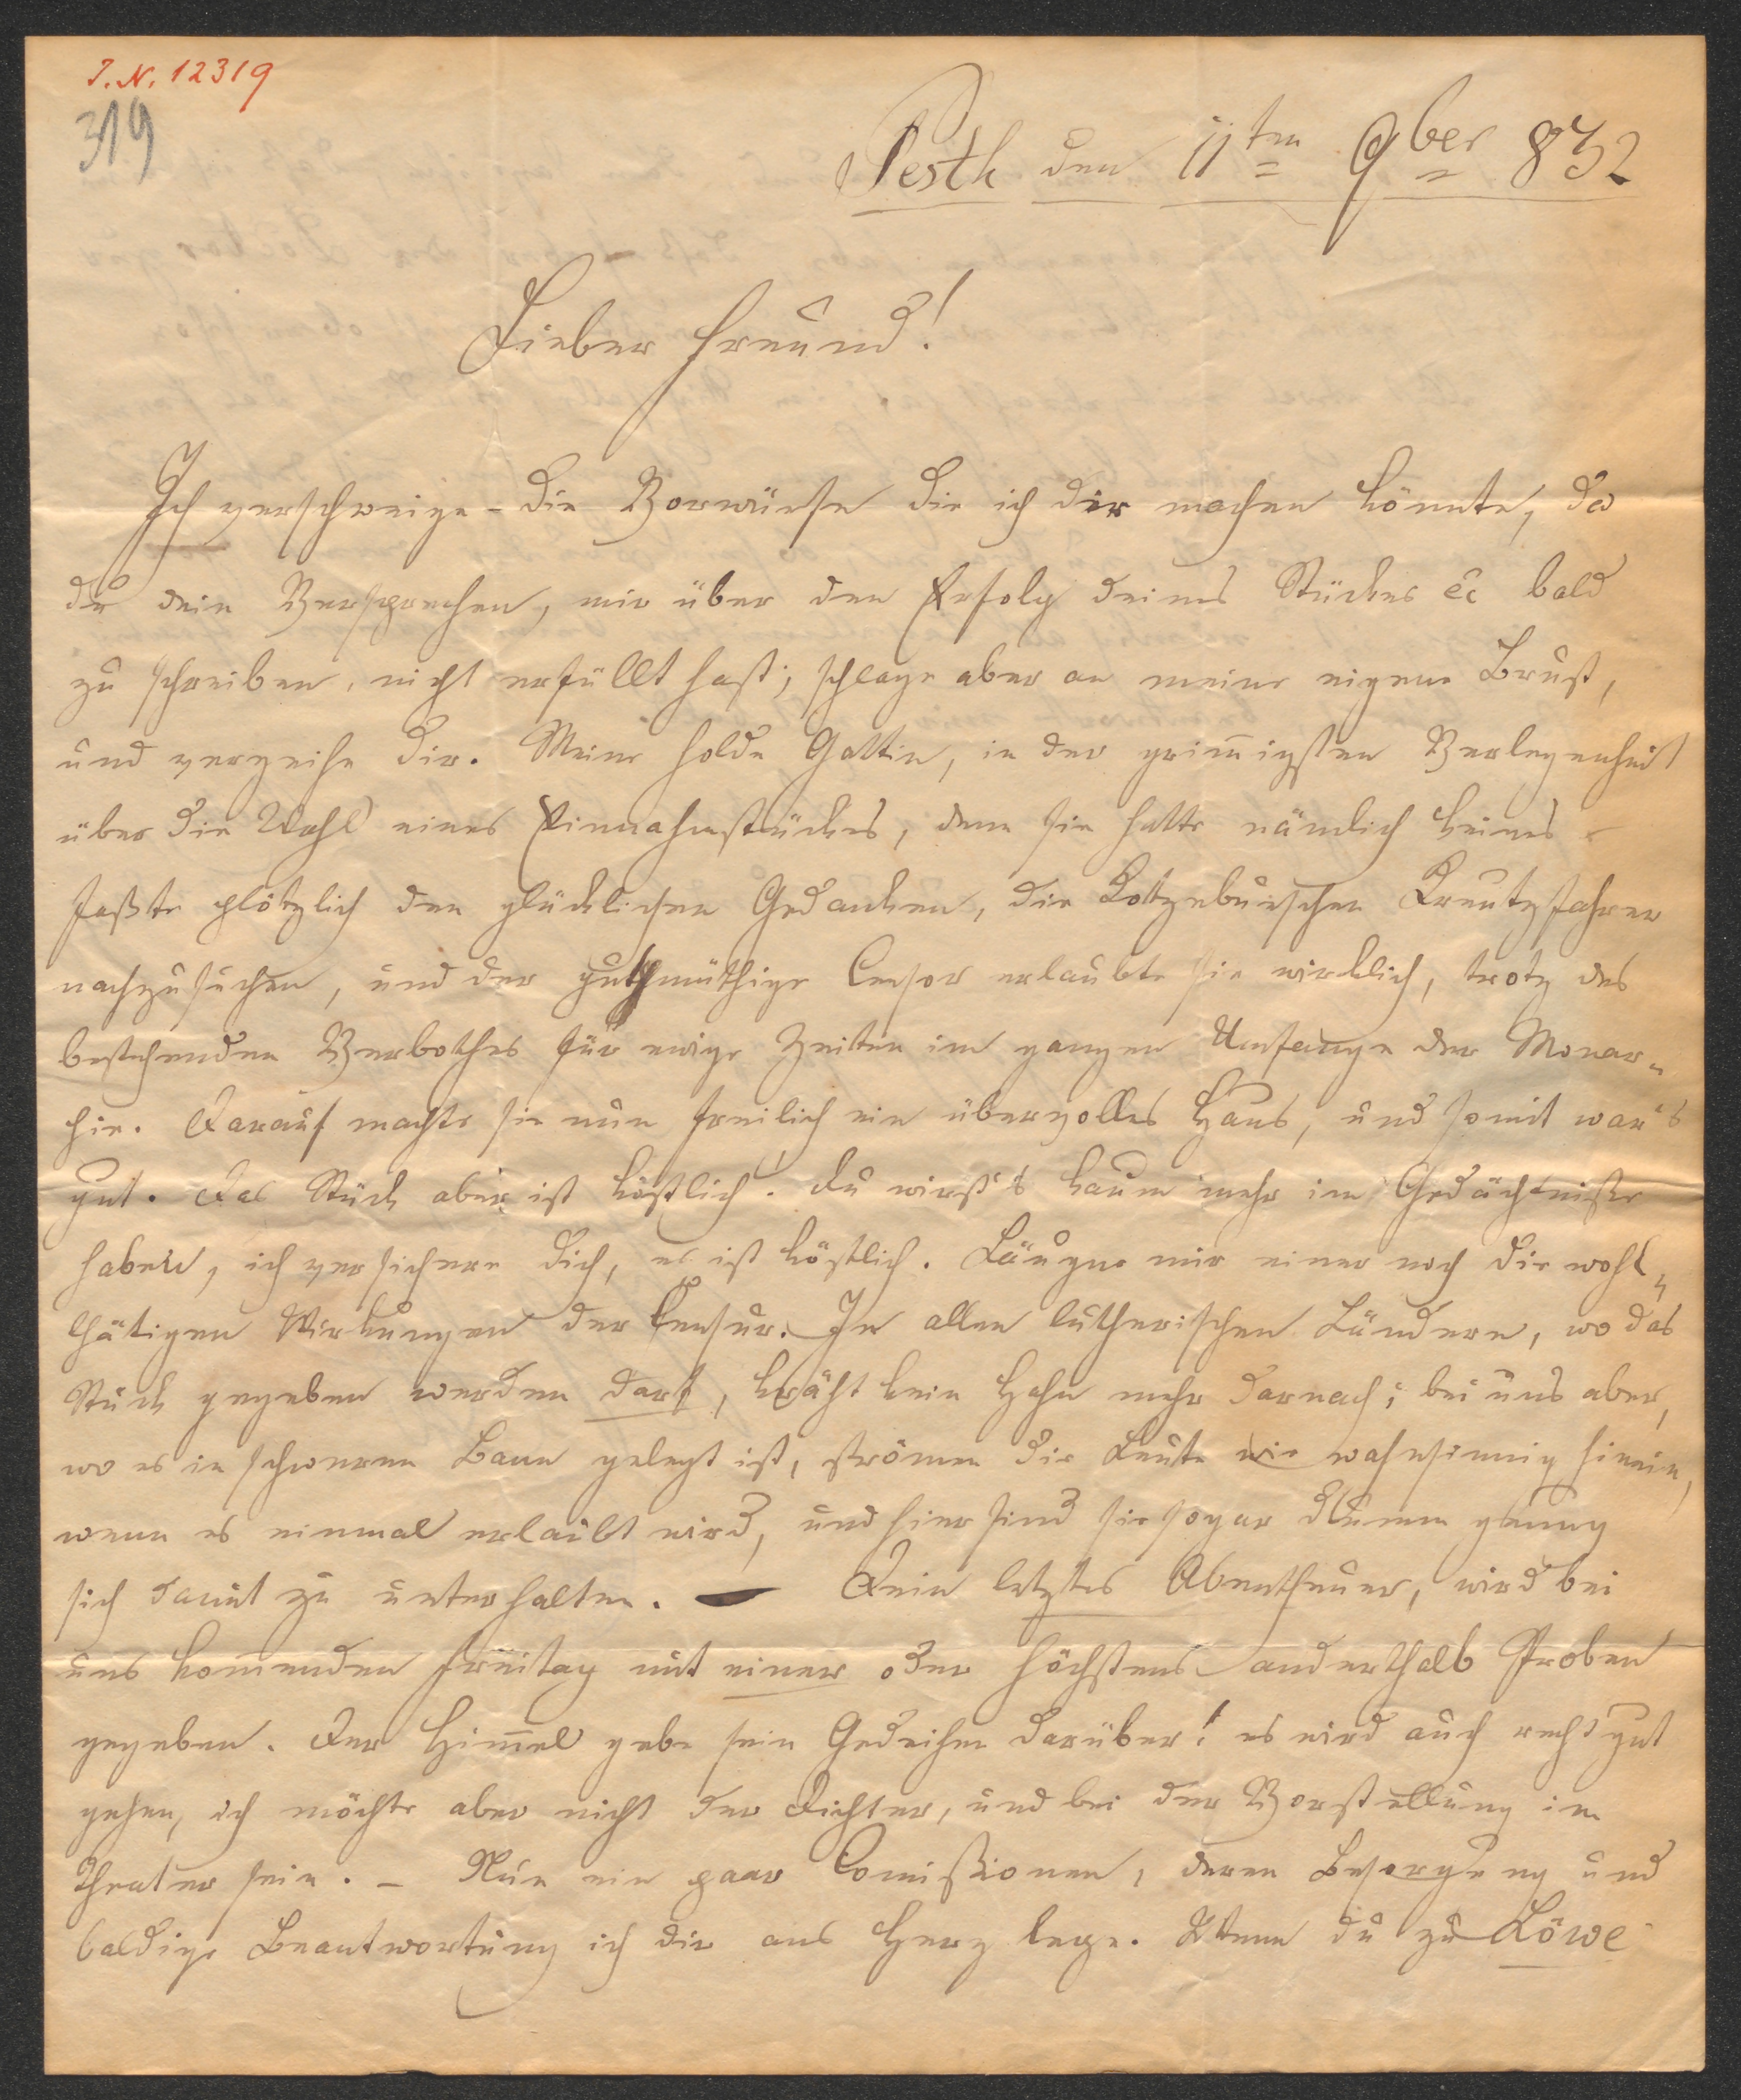 I.N. 12319
319
Pesth den 11ten 9ber 832
Lieber Freund!
Ich verschweige die Vorwürfe die ich dir machen könnte, da
du dein Versprechen, mir über den Erfolg deines Stückes ec bald
zu schreiben, nicht erfüllt hast; schlage aber an meine eigene Brust,
und verzeihe dir. Meine holde Gattin, in der grim̅igsten Verlegenheit
über die Wahl eines Einnahmstückes, denn sie hatte nämlich keines
faßte plötzlich den glücklichen Gedanken, die Kotzebueschen Kreutzfahrer
nachzusuchen, und der guthmüthige Censor erlaubte sie wirklich, trotz des
bestehenden Verbothes für ewige Zeiten im ganzen Umfange der Monar-
hie. Darauf machte sie nun freilich ein übervolles Haus, und somit war's
gut. Das Stück aber ist köstlich! Du wirst's kaum mehr im Gedächtniße
haben, ich versichere dich, es ist köstlich. Läugne mir einer noch die wohl-
thätigen Wirkungen der Censur. In allen lutherischen Ländern, wo das
Stück gegeben werden darf, kräht kein Hahn mehr darnach; bei uns aber,
wo es in schweren Bann gelegt ist, strömen die Leute wie wahnsinnig hinein,
wenn es einmal erlaubt wird, und hier sind sie sogar dumm genug
sich damit zu unterhalten. — Dein letztes Abentheuer, wird bei
uns kom̅enden Freitag mit einer oder höchstens anderthalb Proben
gegeben. Der Him̅el gebe sein Gedeihen darüber! es wird auch recht gut
gehen, ich möchte aber nicht der Dichter, und bei der Vorstellung im
Theater sein. – Nun ein paar Com̅ißionen, deren Besorgung und
baldige Beantwortung ich dir ans Herz lege. Wenn du zu Löwe